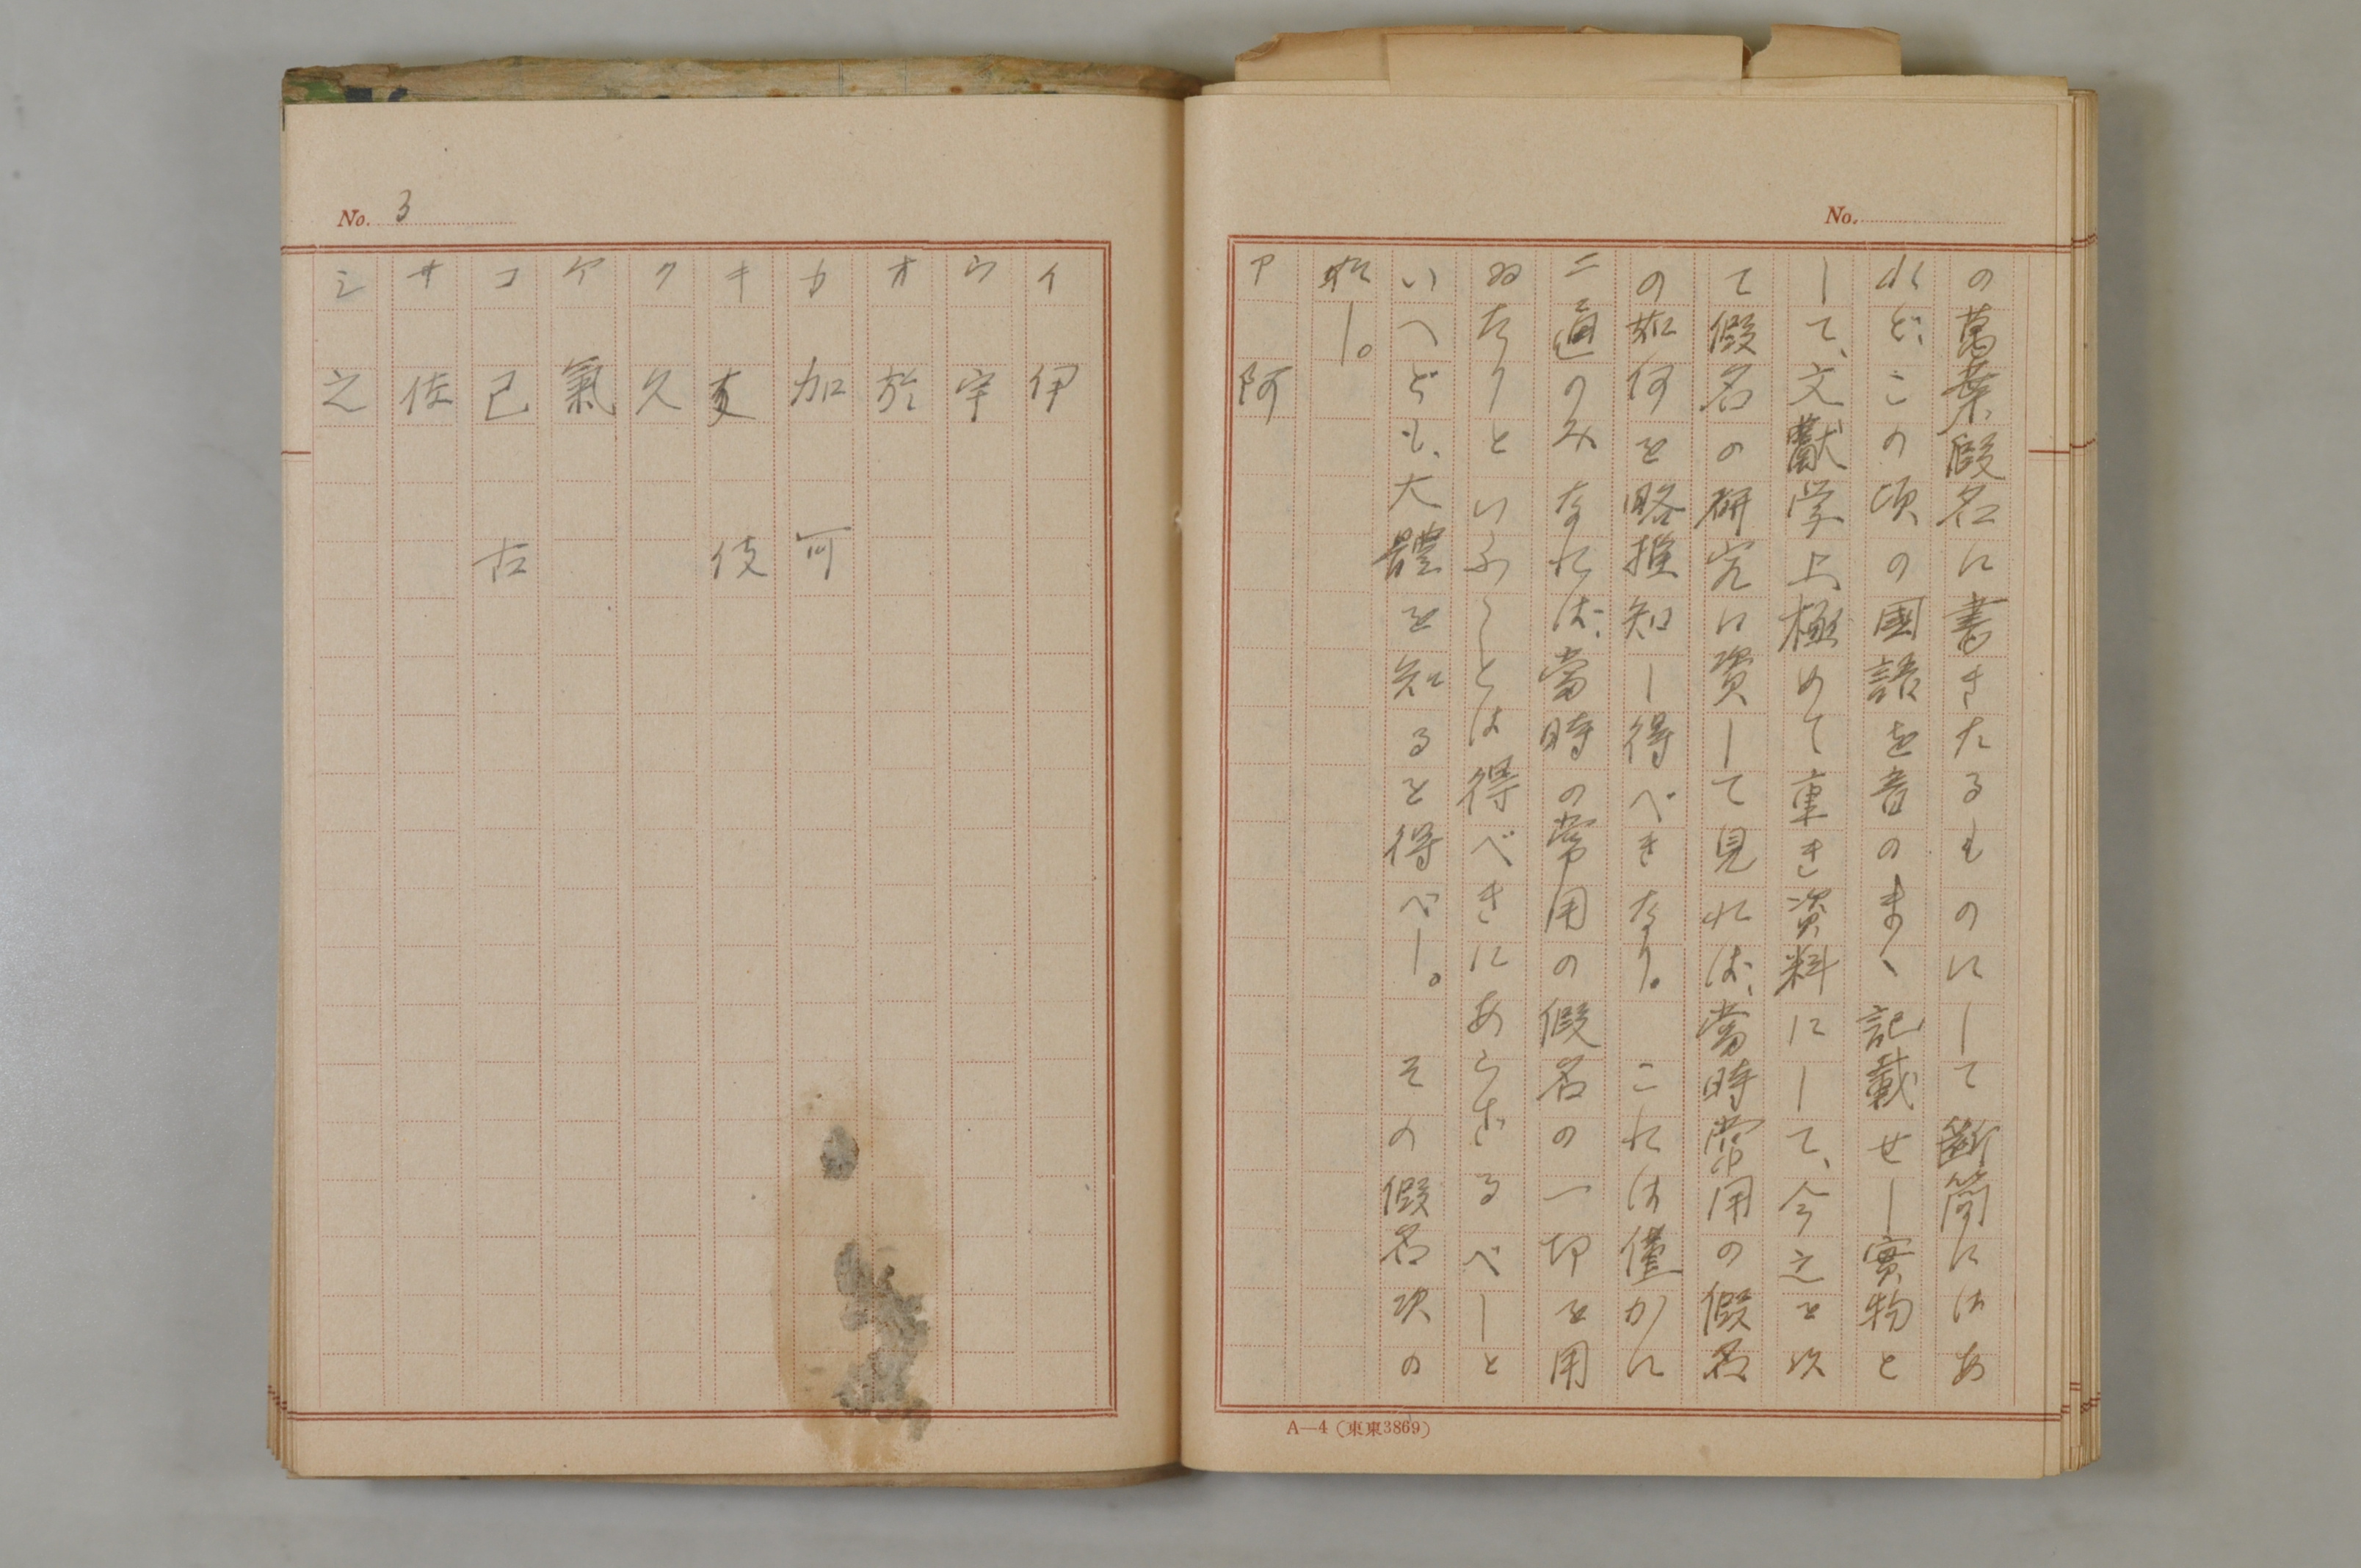 No.
の萬葉假名に書きたるものにして斷簡にはあ
れど、この頃の國語を音のまゝ記載せし實物と
して、文獻学上、極めて重き資料にして、今之を以
て假名の研究に資して見れば、當時常用の假名
の如何を略推知し得べきなり。これは僅かに
二通のみなれば、當時の常用の假名の一切を用
ゐたりといふことは得べきにあらざるべしと
いへども、大體を知るを得べし。その假名次の
如し。
ア 阿
A—4(東東3869)
No. 3
イ 伊
ウ 宇
オ 於
カ 加 可
キ 支 伎
ク 久
ケ 氣
コ 己 古
サ 佐
シ 之